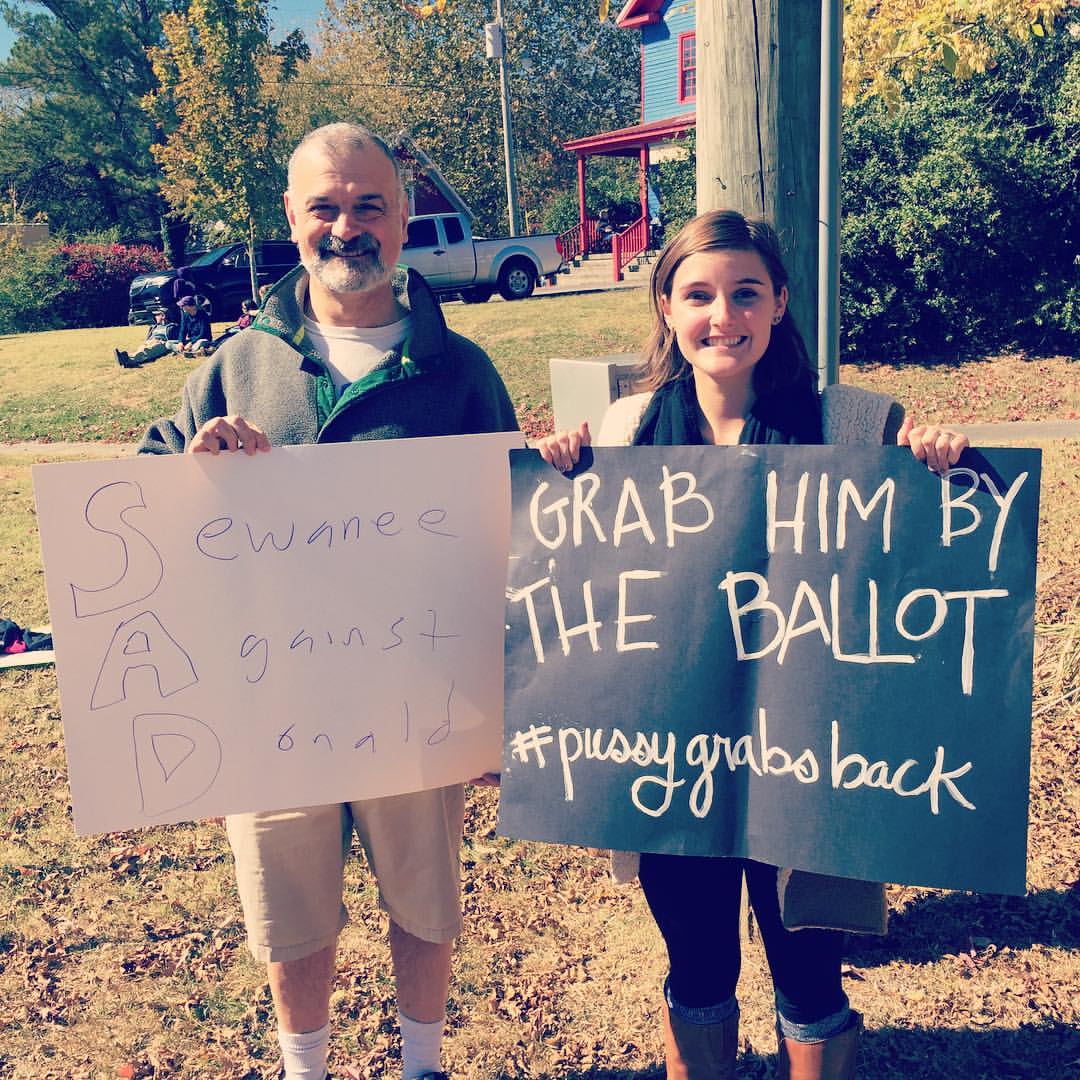 Sewanee
Against
Donald
GRAB HIM BY
THE BALLOT
#pussygrabsback